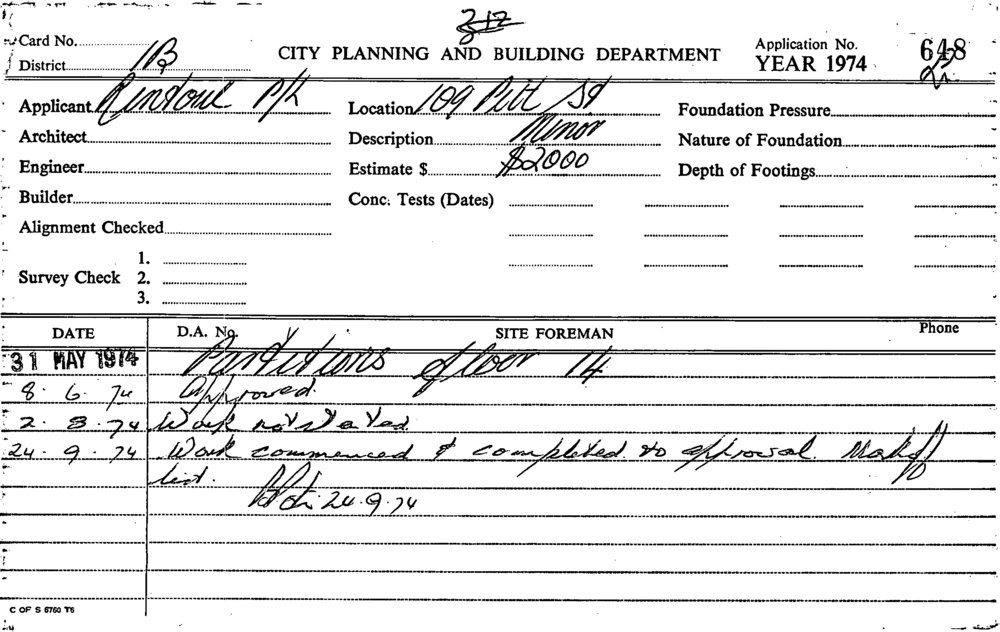 312
Card No.
District 1B
CITY PLANNING AND BUILDING DEPARTMENT
Application No. 648
YEAR 1974
Applicant P/L
Location 109 Pitt St
Foundation Pressure
Architect
Description Minor
Nature of Foundation
Engineer
Estimate $ $2000
Depth of Footings
Builder
Conc. Tests (Dates)
Alignment Checked
1.
Survey Check 2.
3.
DATE D.A. No. SITE FOREMAN Phone
31 MAY 1974 Partitions floor 14
8. 6. 74 Approved.
2. 8. 74 Work not started
24. 9. 74 Work commenced & completed to approval. Mark off
list.
24.9.74
C OF S 6760 T6